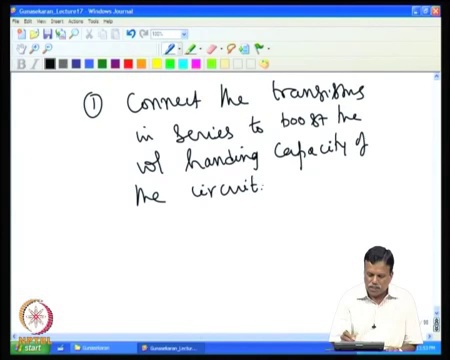 Gunasekaran_Lecture17 - Windows Journal
File Edit View Insert Actions Tools Help
① Connect the transistors
in series to boost the
vol handing capacity of
the circuit.
NPTEL
start
Gunasekaran
Gunasekaran_Lectu...